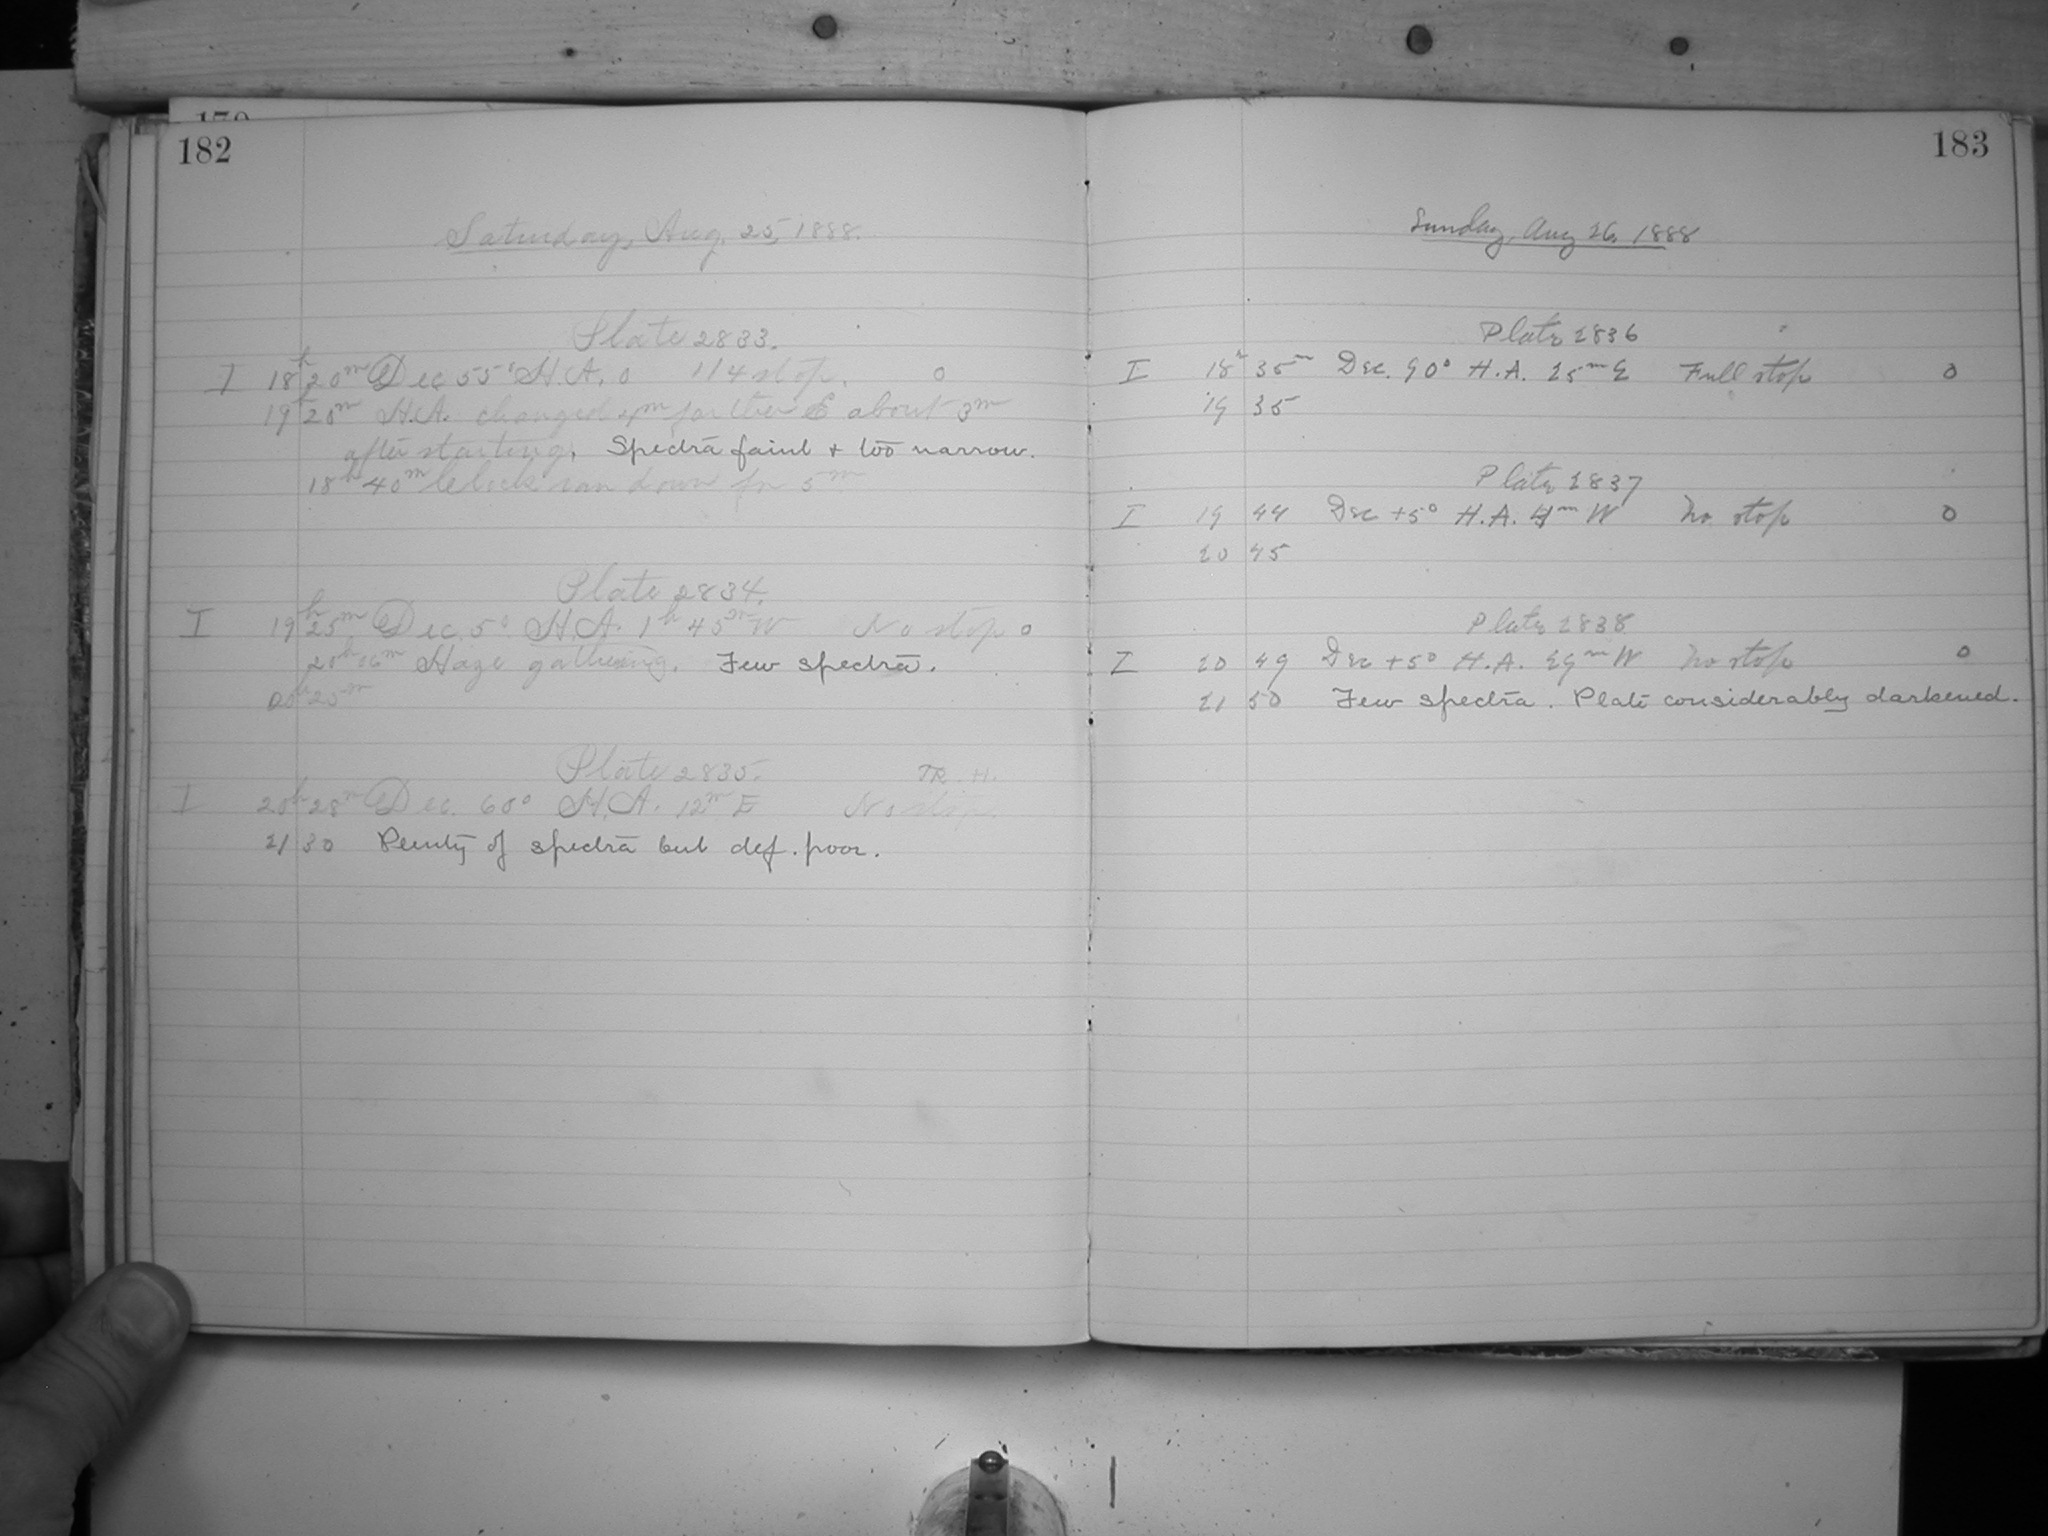 179
182
Saturday, Aug. 25, 1888.
Plate 2833.
I 18h 20m Dec 55° H.A. 0 1/4 stop. 0
19h 20m H.A. changed 4m farther E about 3m
after starting. Spectra faint + too narrow.
18h 40m Clock ran down for 5m
Plate 2834.
I 19h 25m Dec. 5° H.A. 1h 45m W No stop 0
20h 06m Haze gathering. Few spectra.
20h 25m
Plate 2835. TR. H.
I 20h 28m Dec. 60° H.A. 12m E No stop.
21 30 Plenty of spectra but def. poor.
183
Sunday, Aug 26, 1888
Plate 2836
I 18h 35m Dec. 90° H.A. 25m E Full stop 0
19 35
Plate 2837
I 19 44 Dec +5° H.A. m W No stop 0
20 45
Plate 2838
I 20 49 Dec +5° H.A. 29m W No stop 0
21 50 Few spectra. Plate considerably darkened.